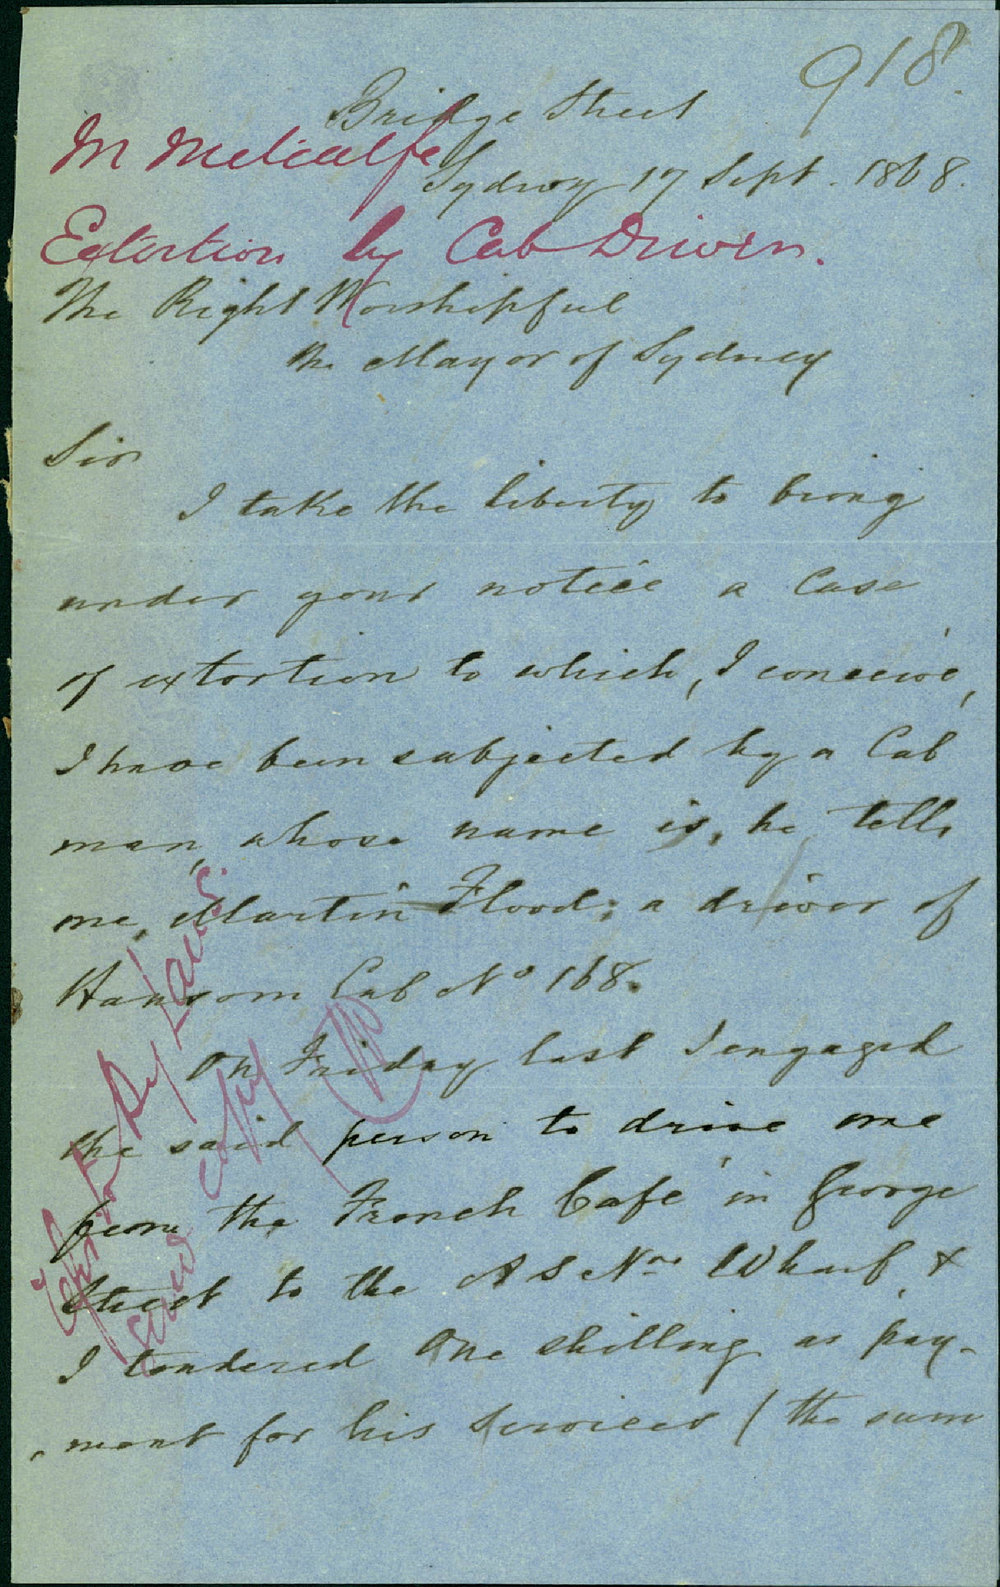 918.
Bridge Street
M Metcalfe
Sydney 17 Sept. 1868.
Extortion by Cab Driver.
The Right Worshipful
the Mayor of Sydney
Sir
I take the liberty to bring
under your notice a Case
of extortion to which, I conceive,
I have been subjected by a Cab
man, whose name is, he tells
me, Martin Flood; a driver of
Hansom Cab No 168.
On Friday last I engaged
the said person to drive me
from the French Café in George
Street to the A S N Wharf &
I tendered One shilling as pay-
ment for his services (the sum
By Laws.
send copy